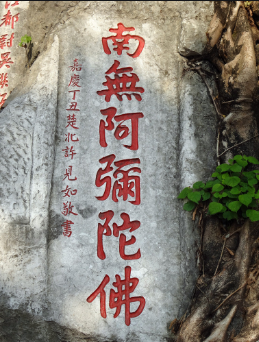 南無阿彌陀佛
嘉慶丁丑楚北許見如敬書
江都